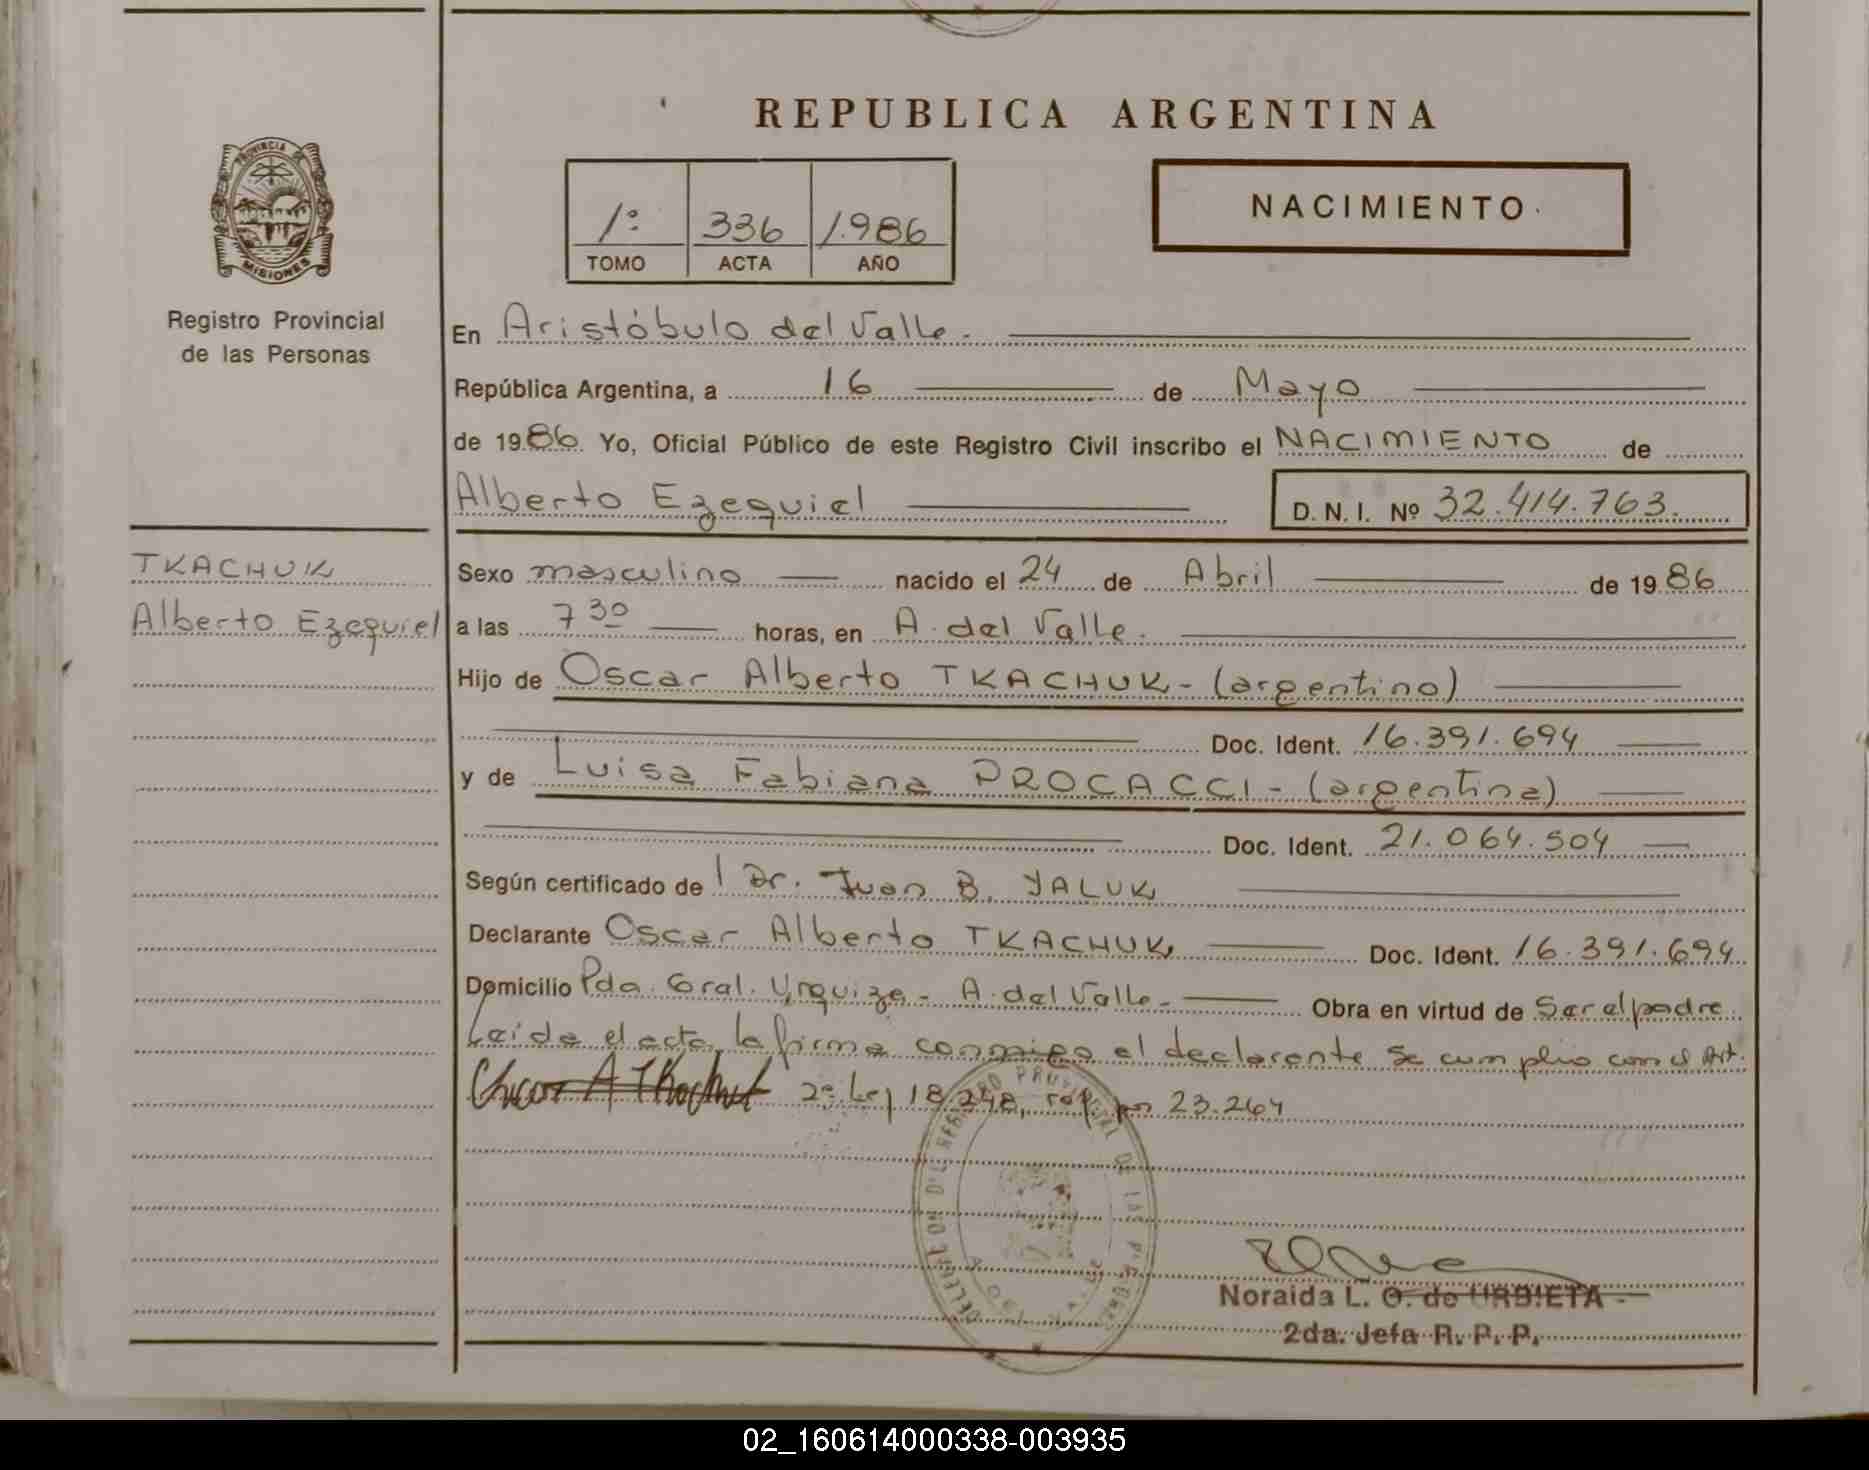 REPUBLICA ARGENTINA
PROVINCIA DE
MISIONES
Registro Provincial
de las Personas
1º 336 1.986
TOMO ACTA AÑO
NACIMIENTO
En Aristóbulo del Valle.
República Argentina, a 16 de Mayo
de 1986 Yo, Oficial Público de este Registro Civil inscribo el NACIMIENTO de
Alberto Ezequiel D. N. I. Nº 32.414.763.
TKACHUK
Alberto Ezequiel
Sexo masculino nacido el 24 de Abril de 1986
a las 7 30 horas, en A. del Valle.
Hijo de Oscar Alberto TKACHUK - (argentino)
Doc. Ident. 16.391.694
y de Luisa Fabiana PROCACCI - (argentina)
Doc. Ident. 21.064.504
Según certificado de l Dr. Juan B. YALUK
Declarante Oscar Alberto TKACHUK Doc. Ident. 16.391.694
Domicilio Pda. Gral. Urquiza - A. del Valle - Obra en virtud de Ser el padre
Leída el acta, la firma conmigo el declarante se cumplio con el Art.
2º Ley 18.248, ref. por 23.264
REGISTRO PROVINCIAL DE LAS
A. DEL VALLE
Noraida L. O. de URBIETA
2da. Jefa R. P. P.
02_160614000338-003935